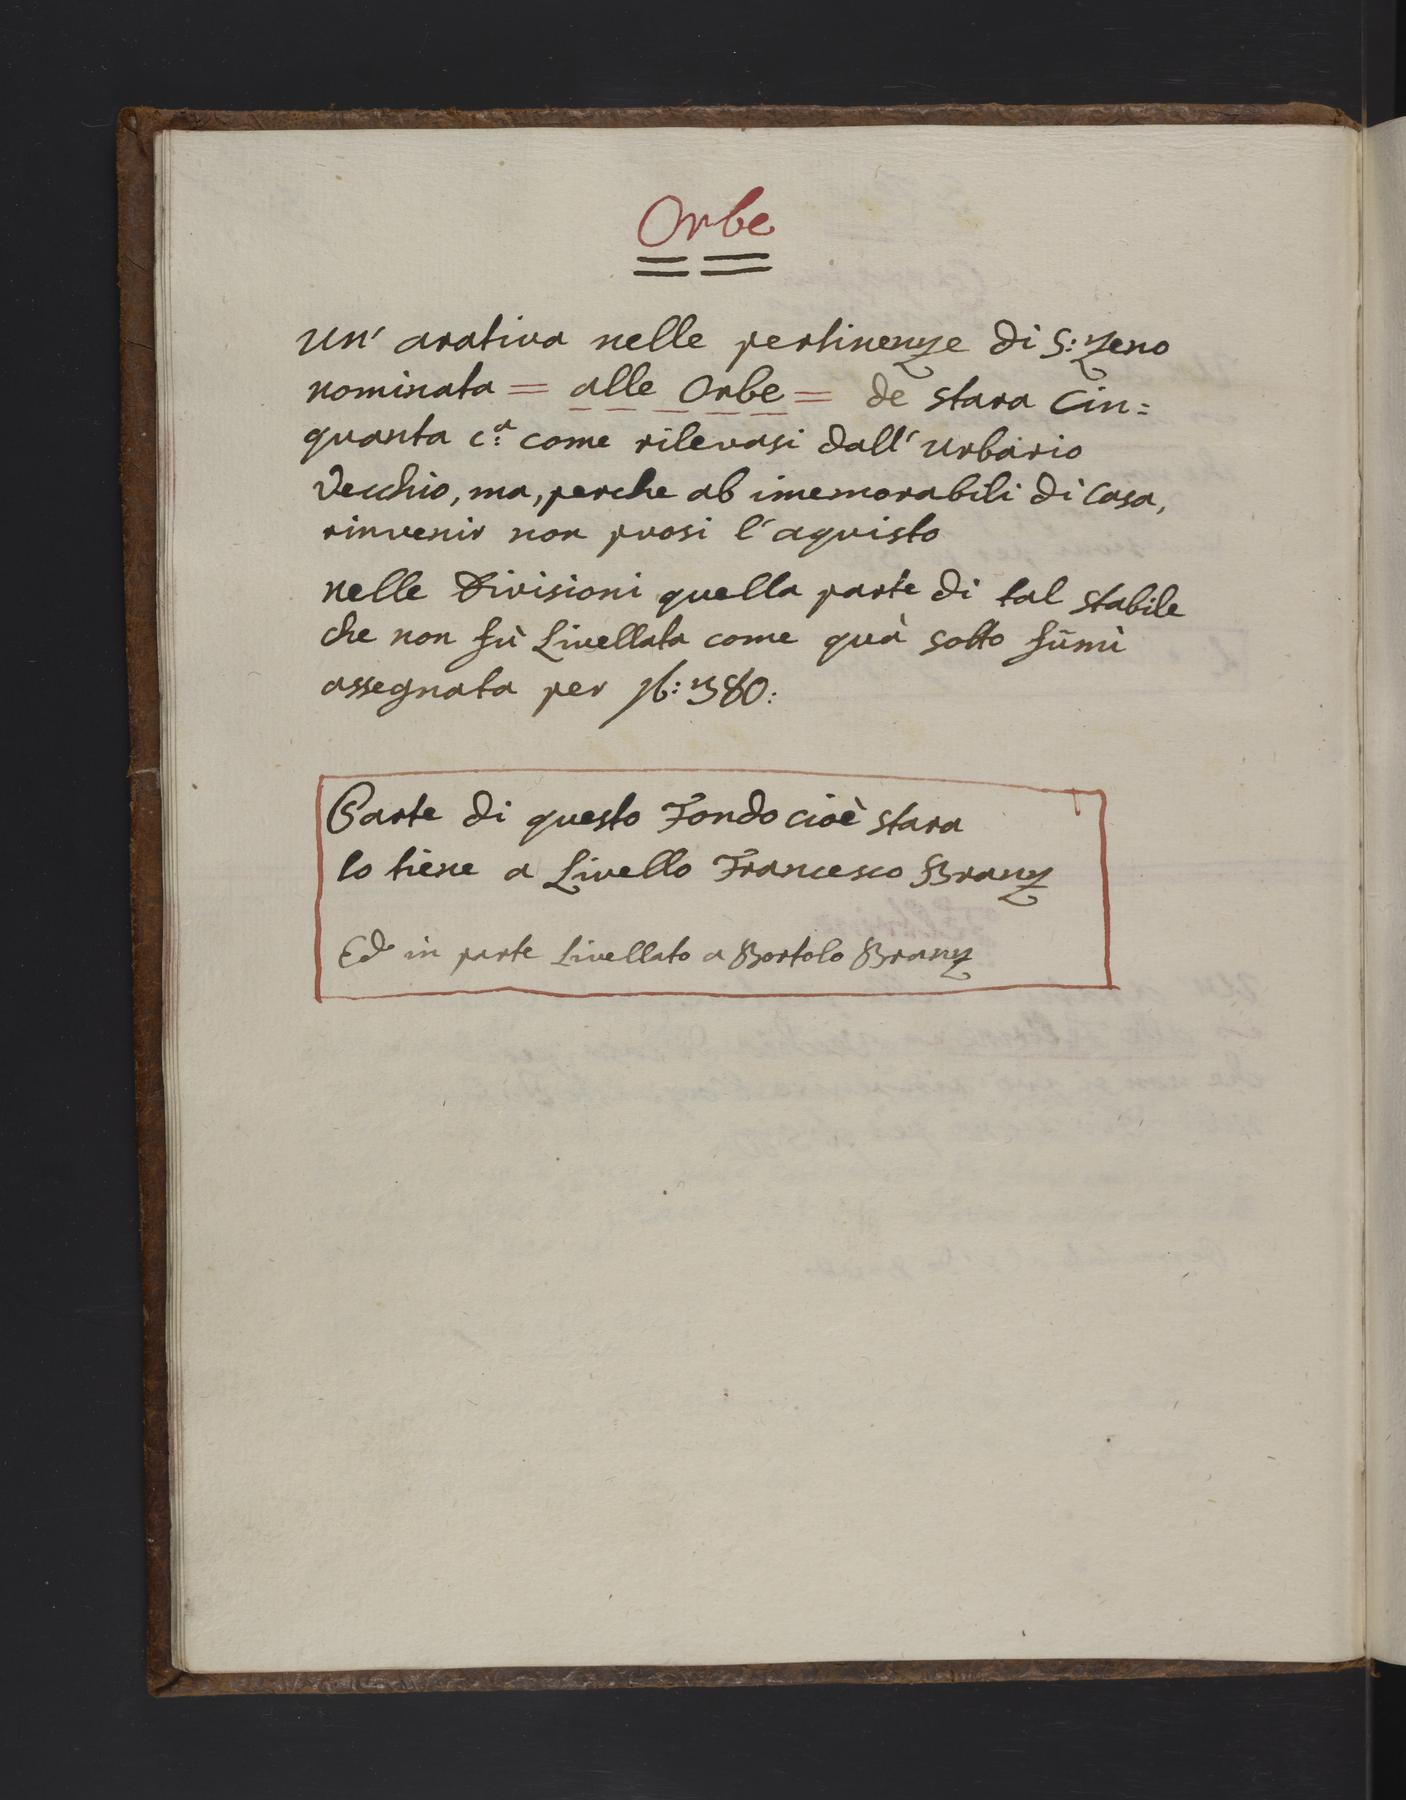 Orbe
Un' arativa nelle pertinenze di S: Zeno
nominata = alle Orbe = de stara Cin=
quanta c.a come rilevasi dall' Urbario
Vecchio, ma, perche ab imemorabili di Casa,
rinvenir non puosi l'aquisto
nelle Divisioni quella parte di tal stabile
che non fù Livellata come quà sotto fùmi
assegnata per 380:
Parte di questo Fondo cioè stara
lo tiene a Livello Francesco Branz
Ed in parte Livellato a Bortolo Branz